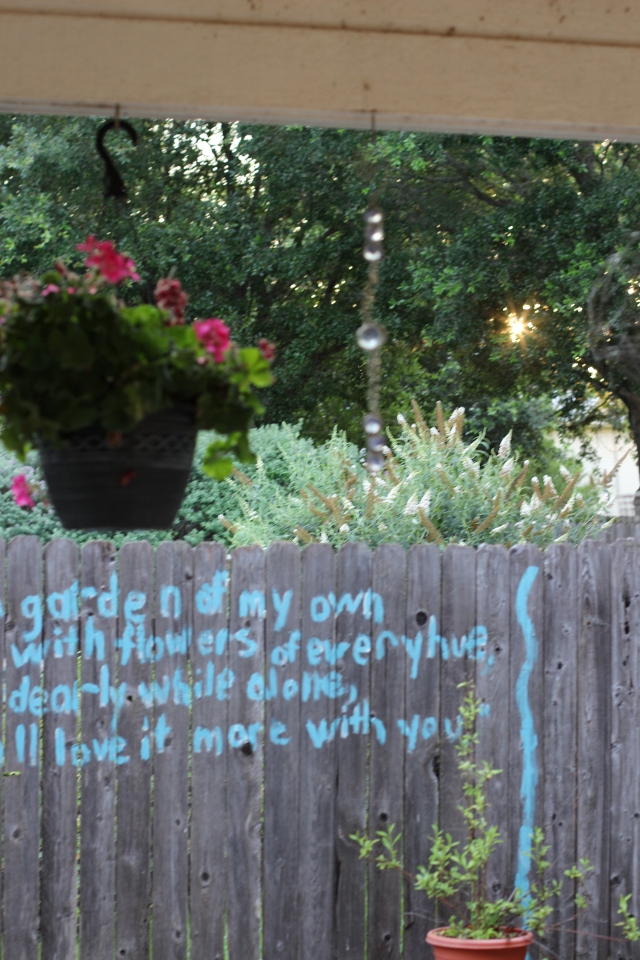 garden of my own
with flowers of every hue,
dearly while alone,
ll love it more with you"